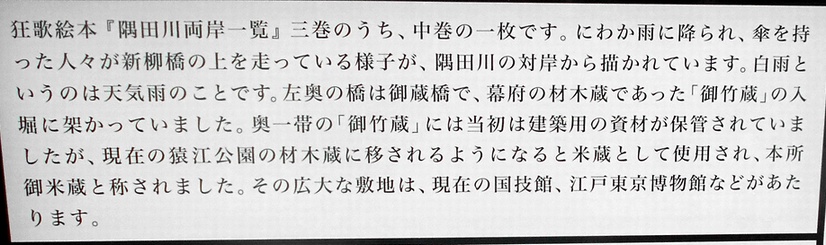 狂歌絵本『隅田川両岸一覧』三巻のうち、中巻の一枚です。にわか雨に降られ、傘を持
った人々が新柳橋の上を走っている様子が、隅田川の対岸から描かれています。白雨と
いうのは天気雨のことです。左奥の橋は御蔵橋で、幕府の材木蔵であった「御竹蔵」の入
堀に架かっていました。奥一帯の「御竹蔵」には当初は建築用の資材が保管されていま
したが、現在の猿江公園の材木蔵に移されるようになると米蔵として使用され、本所
御米蔵と称されました。その広大な敷地は、現在の国技館、江戸東京博物館などがあた
ります。